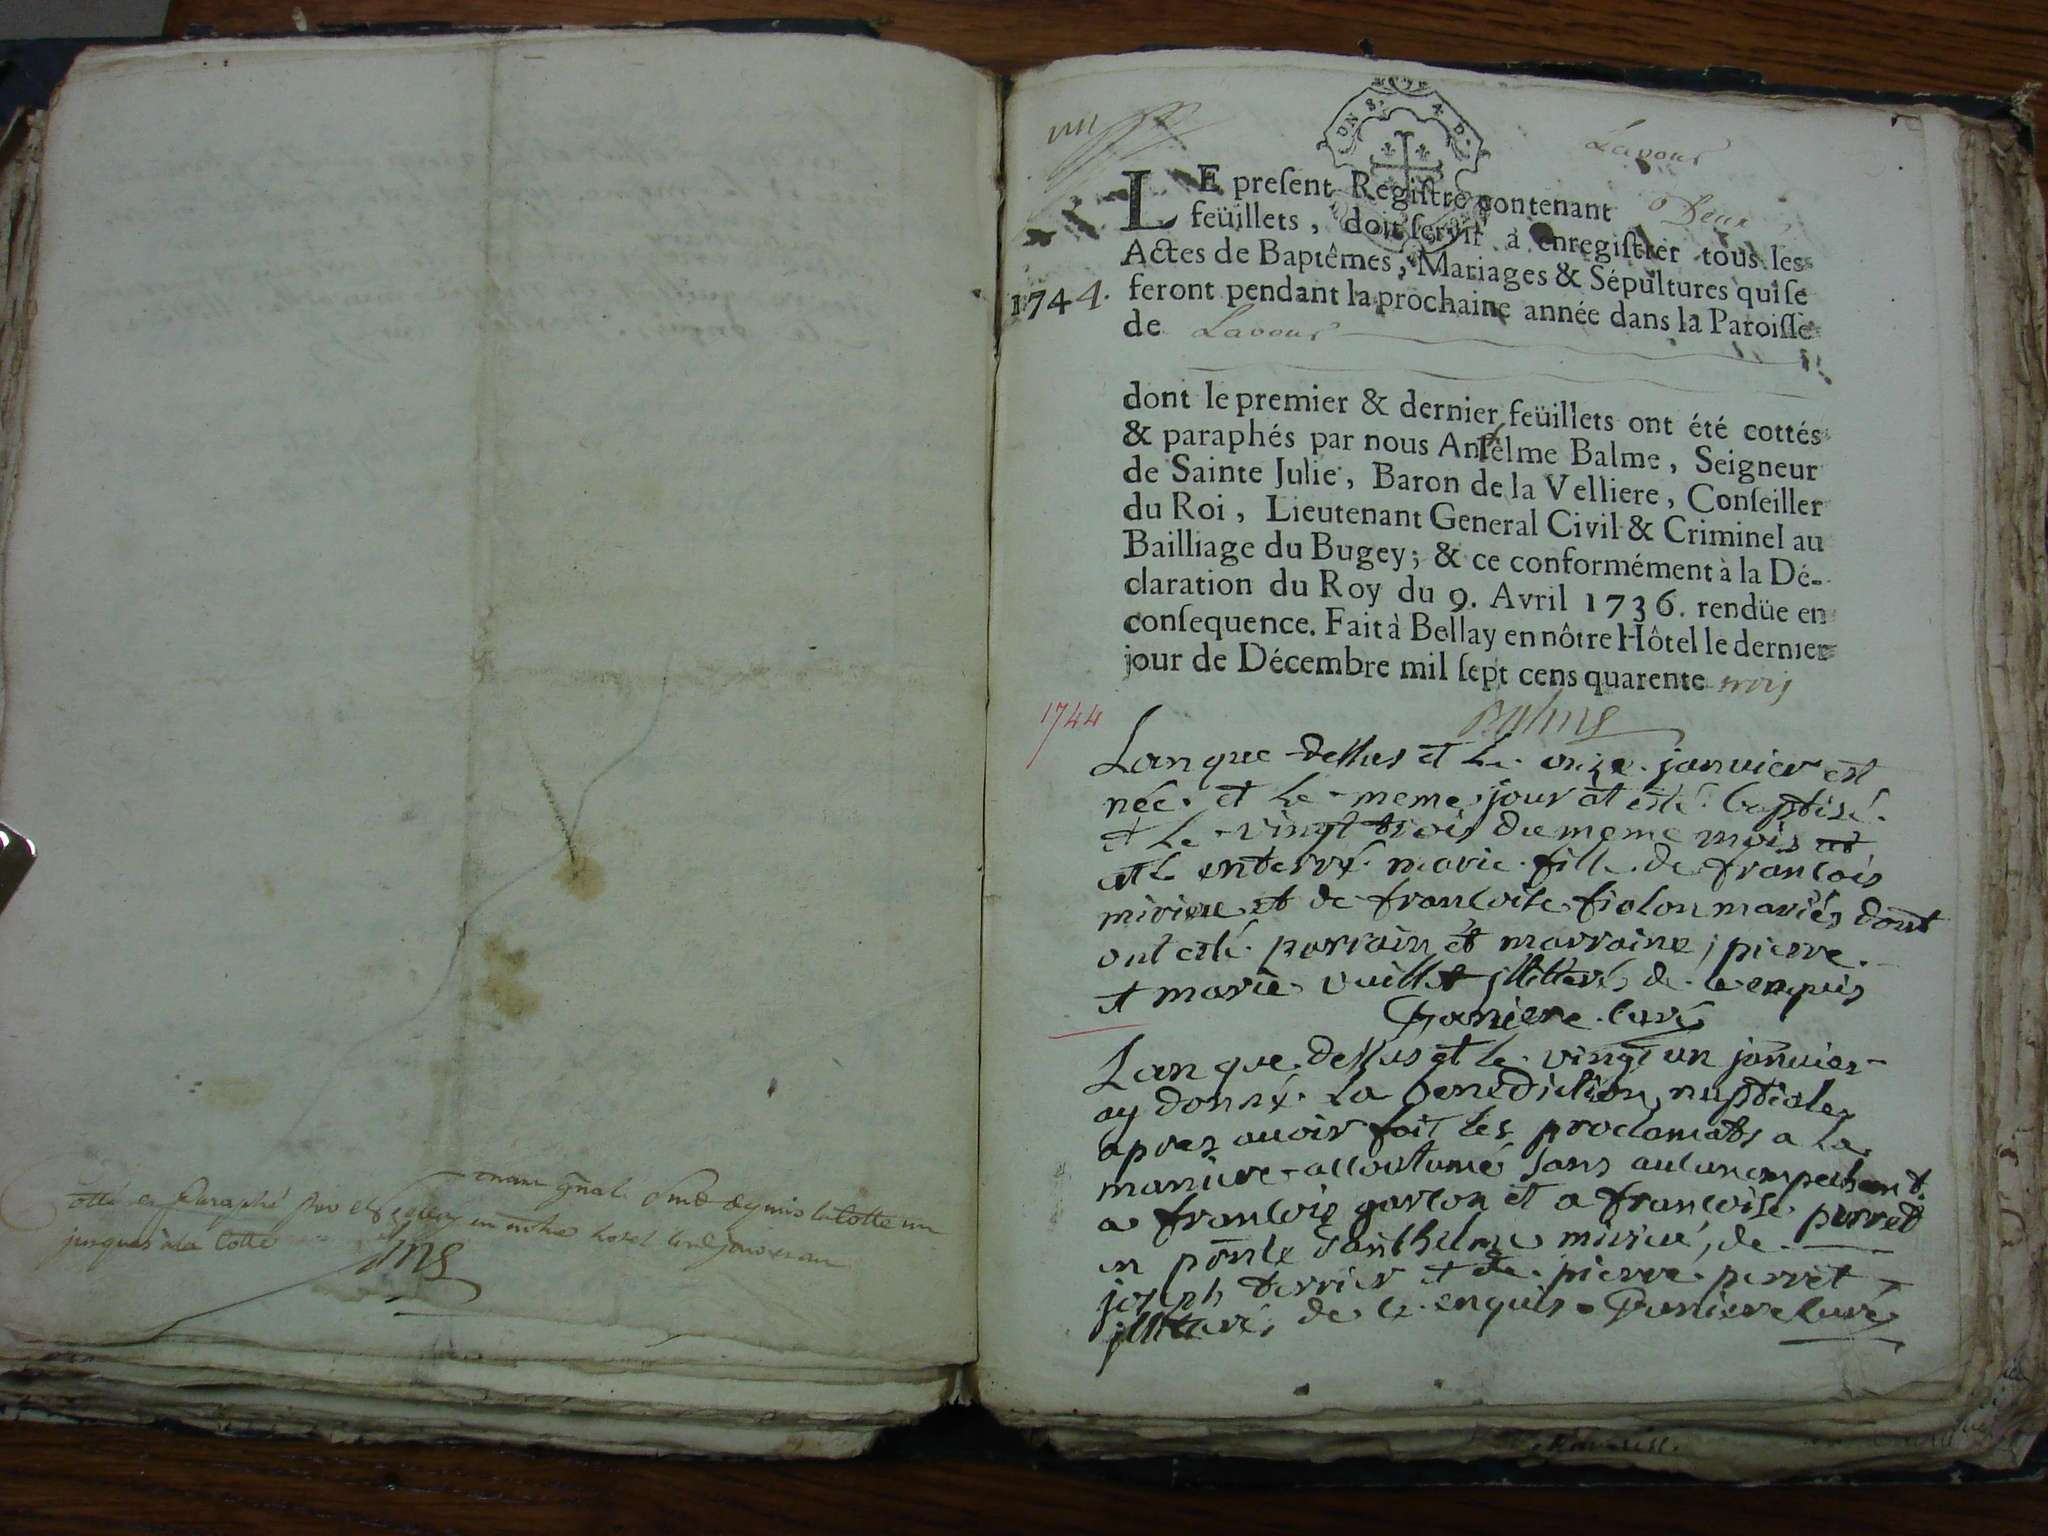 cotté et paraphé par
jusques a la cotte
Lavours
LE preſent Regiſtre contenant Deux
feüillets, doit ſervir à enregiſtrer tous les
Actes de Baptêmes, Mariages & Sépultures qui ſe
1744. feront pendant la prochaine année dans la Paroiſſe
de Lavours
dont le premier & dernier feüillets ont été cottés
& paraphés par nous Anſelme Balme, Seigneur
de Sainte Julie, Baron de la Velliere, Conſeiller
du Roi, Lieutenant General Civil & Criminel au
Bailliage du Bugey; & ce conformément à la Dé-
claration du Roy du 9. Avril 1736. rendüe en
conſequence. Fait à Bellay en nôtre Hôtel le dernier
jour de Décembre mil ſept cens quarente trois
Balme
1744
Lan que dessus et le onze janvier est
née et le meme jour at esté baptisé
et le vingt trois du meme mois at
eté enterré marie fille de francois
et de francoise fiolon mariés dont
ont esté parrain et marraine, pierre
et marie vuillet jllitterés de
Garniere curé
Lan que dessus et le vingt un janvier
ay donné la benediction nuptiale
apres avoir fait les proclamats a la
maniere accoutumé sans aucun empechemt
a francois garlon et a francoise perret
en pñce danthelme de
joseph terrier et de pierre perret
jllitterés de Garniere curé